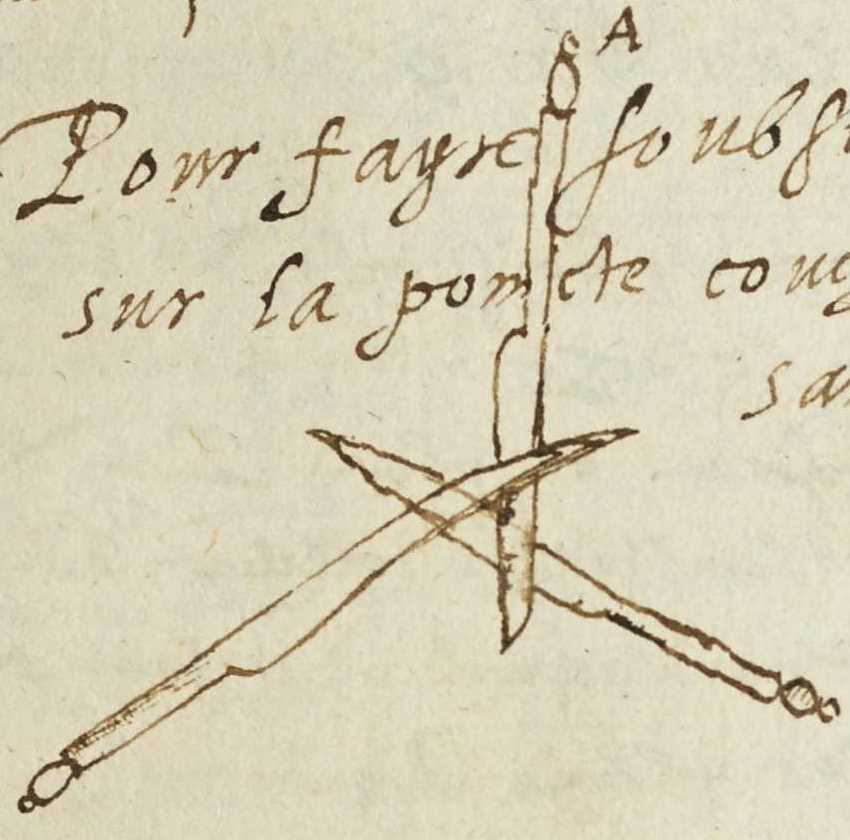 A
Pour fayre soubs
sur la poincte cou
sa